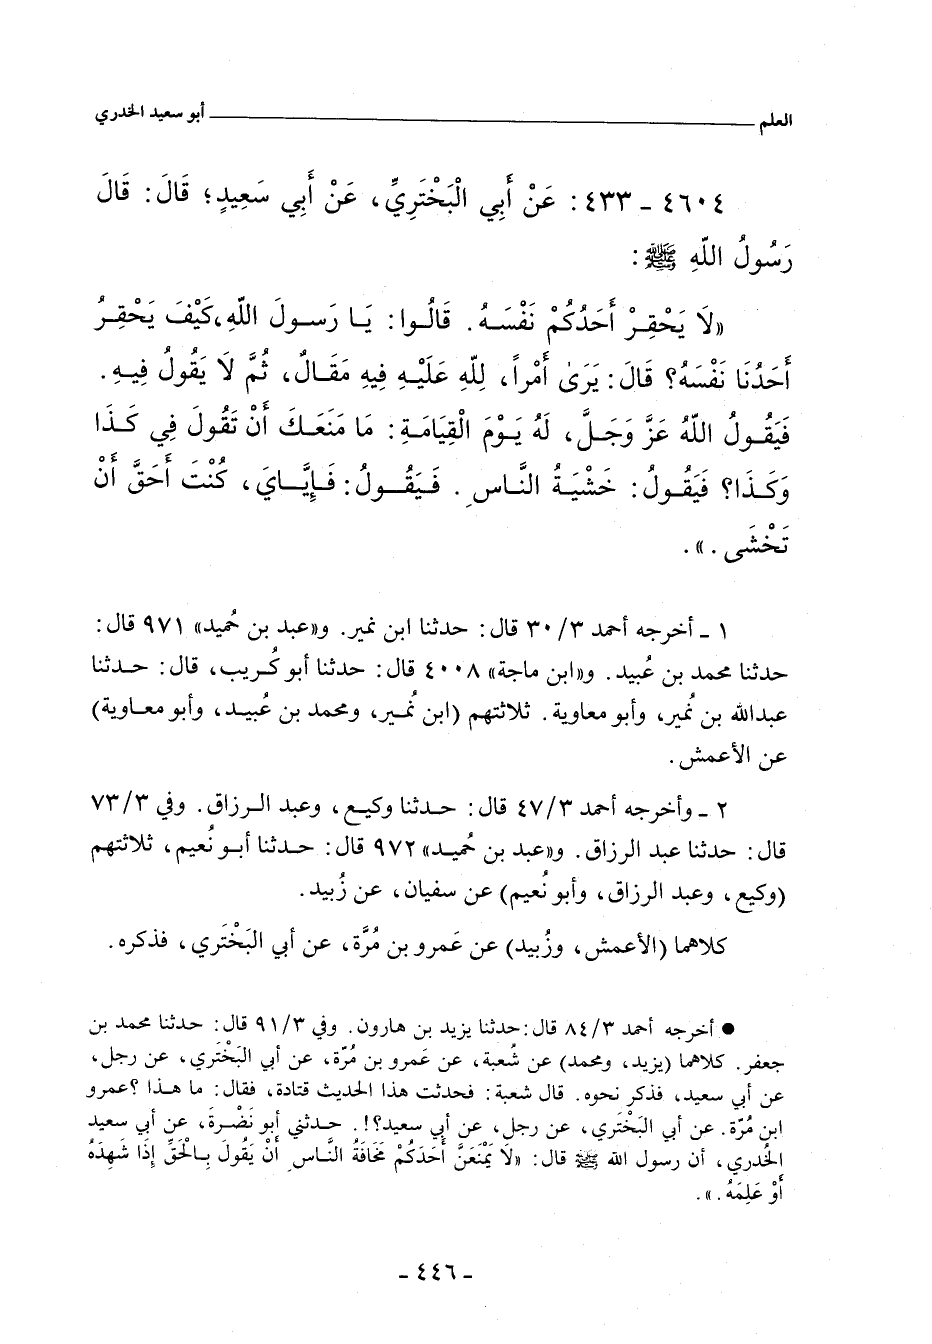 العلم ــــــــ أبو سعيد الخدري
٤٦٠٤ ـ ٤٣٣ : عَنْ أَبِي الْبَخْتَرِيِّ، عَنْ أَبِي سَعِيدٍ؛ قَالَ: قَالَ
رَسُولُ اللَّهِ ﷺ:
«لَا يَحْقِرْ أَحَدُكُمْ نَفْسَهُ. قَالُوا: يَا رَسولَ اللَّهِ،كَيْفَ يَحْقِرُ
أَحَدُنَا نَفْسَهُ؟ قَالَ: يَرَىٰ أَمْراً، لِلَّهِ عَلَيْهِ فِيهِ مَقَالٌ، ثُمَّ لَا يَقُولُ فِيهِ.
فَيَقُولُ اللَّهُ عَزَّ وَجَلَّ، لَهُ يَوْمَ الْقِيَامَةِ: مَا مَنَعَكَ أَنْ تَقُولَ فِي كَذَا
وَكَذَا؟ فَيَقُولُ: خَشْيَةُ النَّاسِ. فَيَقُولُ: فَإِيَّايَ، كُنْتَ أَحَقَّ أَنْ
تَخْشَى.».
١ ـ أخرجه أحمد ٣٠/٣ قال: حدثنا ابن نمير. و«عبد بن حُميد» ٩٧١ قال:
حدثنا محمد بن عُبيد. و«ابن ماجة» ٤٠٠٨ قال: حدثنا أبو كُريب، قال: حدثنا
عبدالله بن نُمير، وأبو معاوية. ثلاثتهم (ابن نُمير، ومحمد بن عُبيد، وأبو معاوية)
عن الأعمش.
٢ ـ وأخرجه أحمد ٤٧/٣ قال: حدثنا وكيع، وعبد الرزاق. وفي ٧٣/٣
قال: حدثنا عبد الرزاق. و«عبد بن حُميد» ٩٧٢ قال: حدثنا أبو نُعيم، ثلاثتهم
(وكيع، وعبد الرزاق، وأبو نُعيم) عن سفيان، عن زُبيد.
كلاهما (الأعمش، وزُبيد) عن عَمرو بن مُرَّة، عن أبي البَخْتَري، فذكره.
● أخرجه أحمد ٨٤/٣ قال:حدثنا يزيد بن هارون. وفي ٩١/٣ قال: حدثنا محمد بن
جعفر. كلاهما (يزيد، ومحمد) عن شُعبة، عن عَمرو بن مُرّة، عن أبي البَخْتَري، عن رجل،
عن أبي سعيد، فذكر نحوه. قال شعبة: فحدثت هذا الحديث قتادة، فقال: ما هذا ؟عمرو
ابن مُرّة. عن أبي البَخْتَري، عن رجل، عن أبي سعيد؟!. حدثني أبو نَضْرة، عن أبي سعيد
الخُدري، أن رسول الله ﷺ قال: «لَا يَمْنَعَنَّ أَحَدَكُمْ مَخَافَةُ النَّاسِ أَنْ يَقُولَ بِالْحَقِّ إِذَا شَهِدَهُ
أَوْ عَلِمَهُ.».
ـ ٤٤٦ ـ